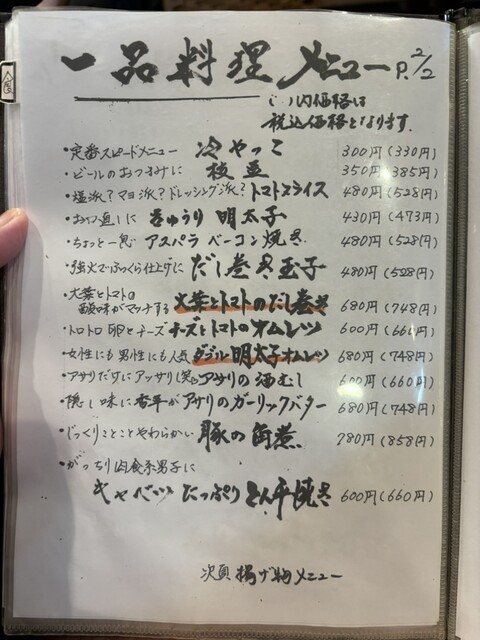 一品料理メニュー P.2/2
( )内価格は
税込価格となります.
・定番スピードメニュー 冷やっこ 300円(330円)
・ビールのおつまみに 枝豆 350円(385円)
・塩派?マヨ派?ドレッシング派? トマトスライス 480円(528円)
・お口直しに きゅうり明太子 430円(473円)
・ちょっと一息 アスパラベーコン焼き 480円(528円)
・強火でふっくら仕上げに だし巻き玉子 480円(528円)
・大葉とトマトの
酸味がマッチする 大葉とトマトのだし巻き 680円(748円)
・トロトロ卵とチーズ チーズとトマトのオムレツ 600円(660円)
・女性にも男性にも人気 ダブル明太子オムレツ 680円(748円)
・アサリだけにアッサリ(笑) アサリの酒むし 600円(660円)
・隠し味に香草が アサリのガーリックバター 680円(748円)
・じっくりことことやわらかい 豚の角煮 780円(858円)
・がっちり肉食系男子に
キャベツたっぷりとん平焼き 600円(660円)
次頁 揚げ物メニュー